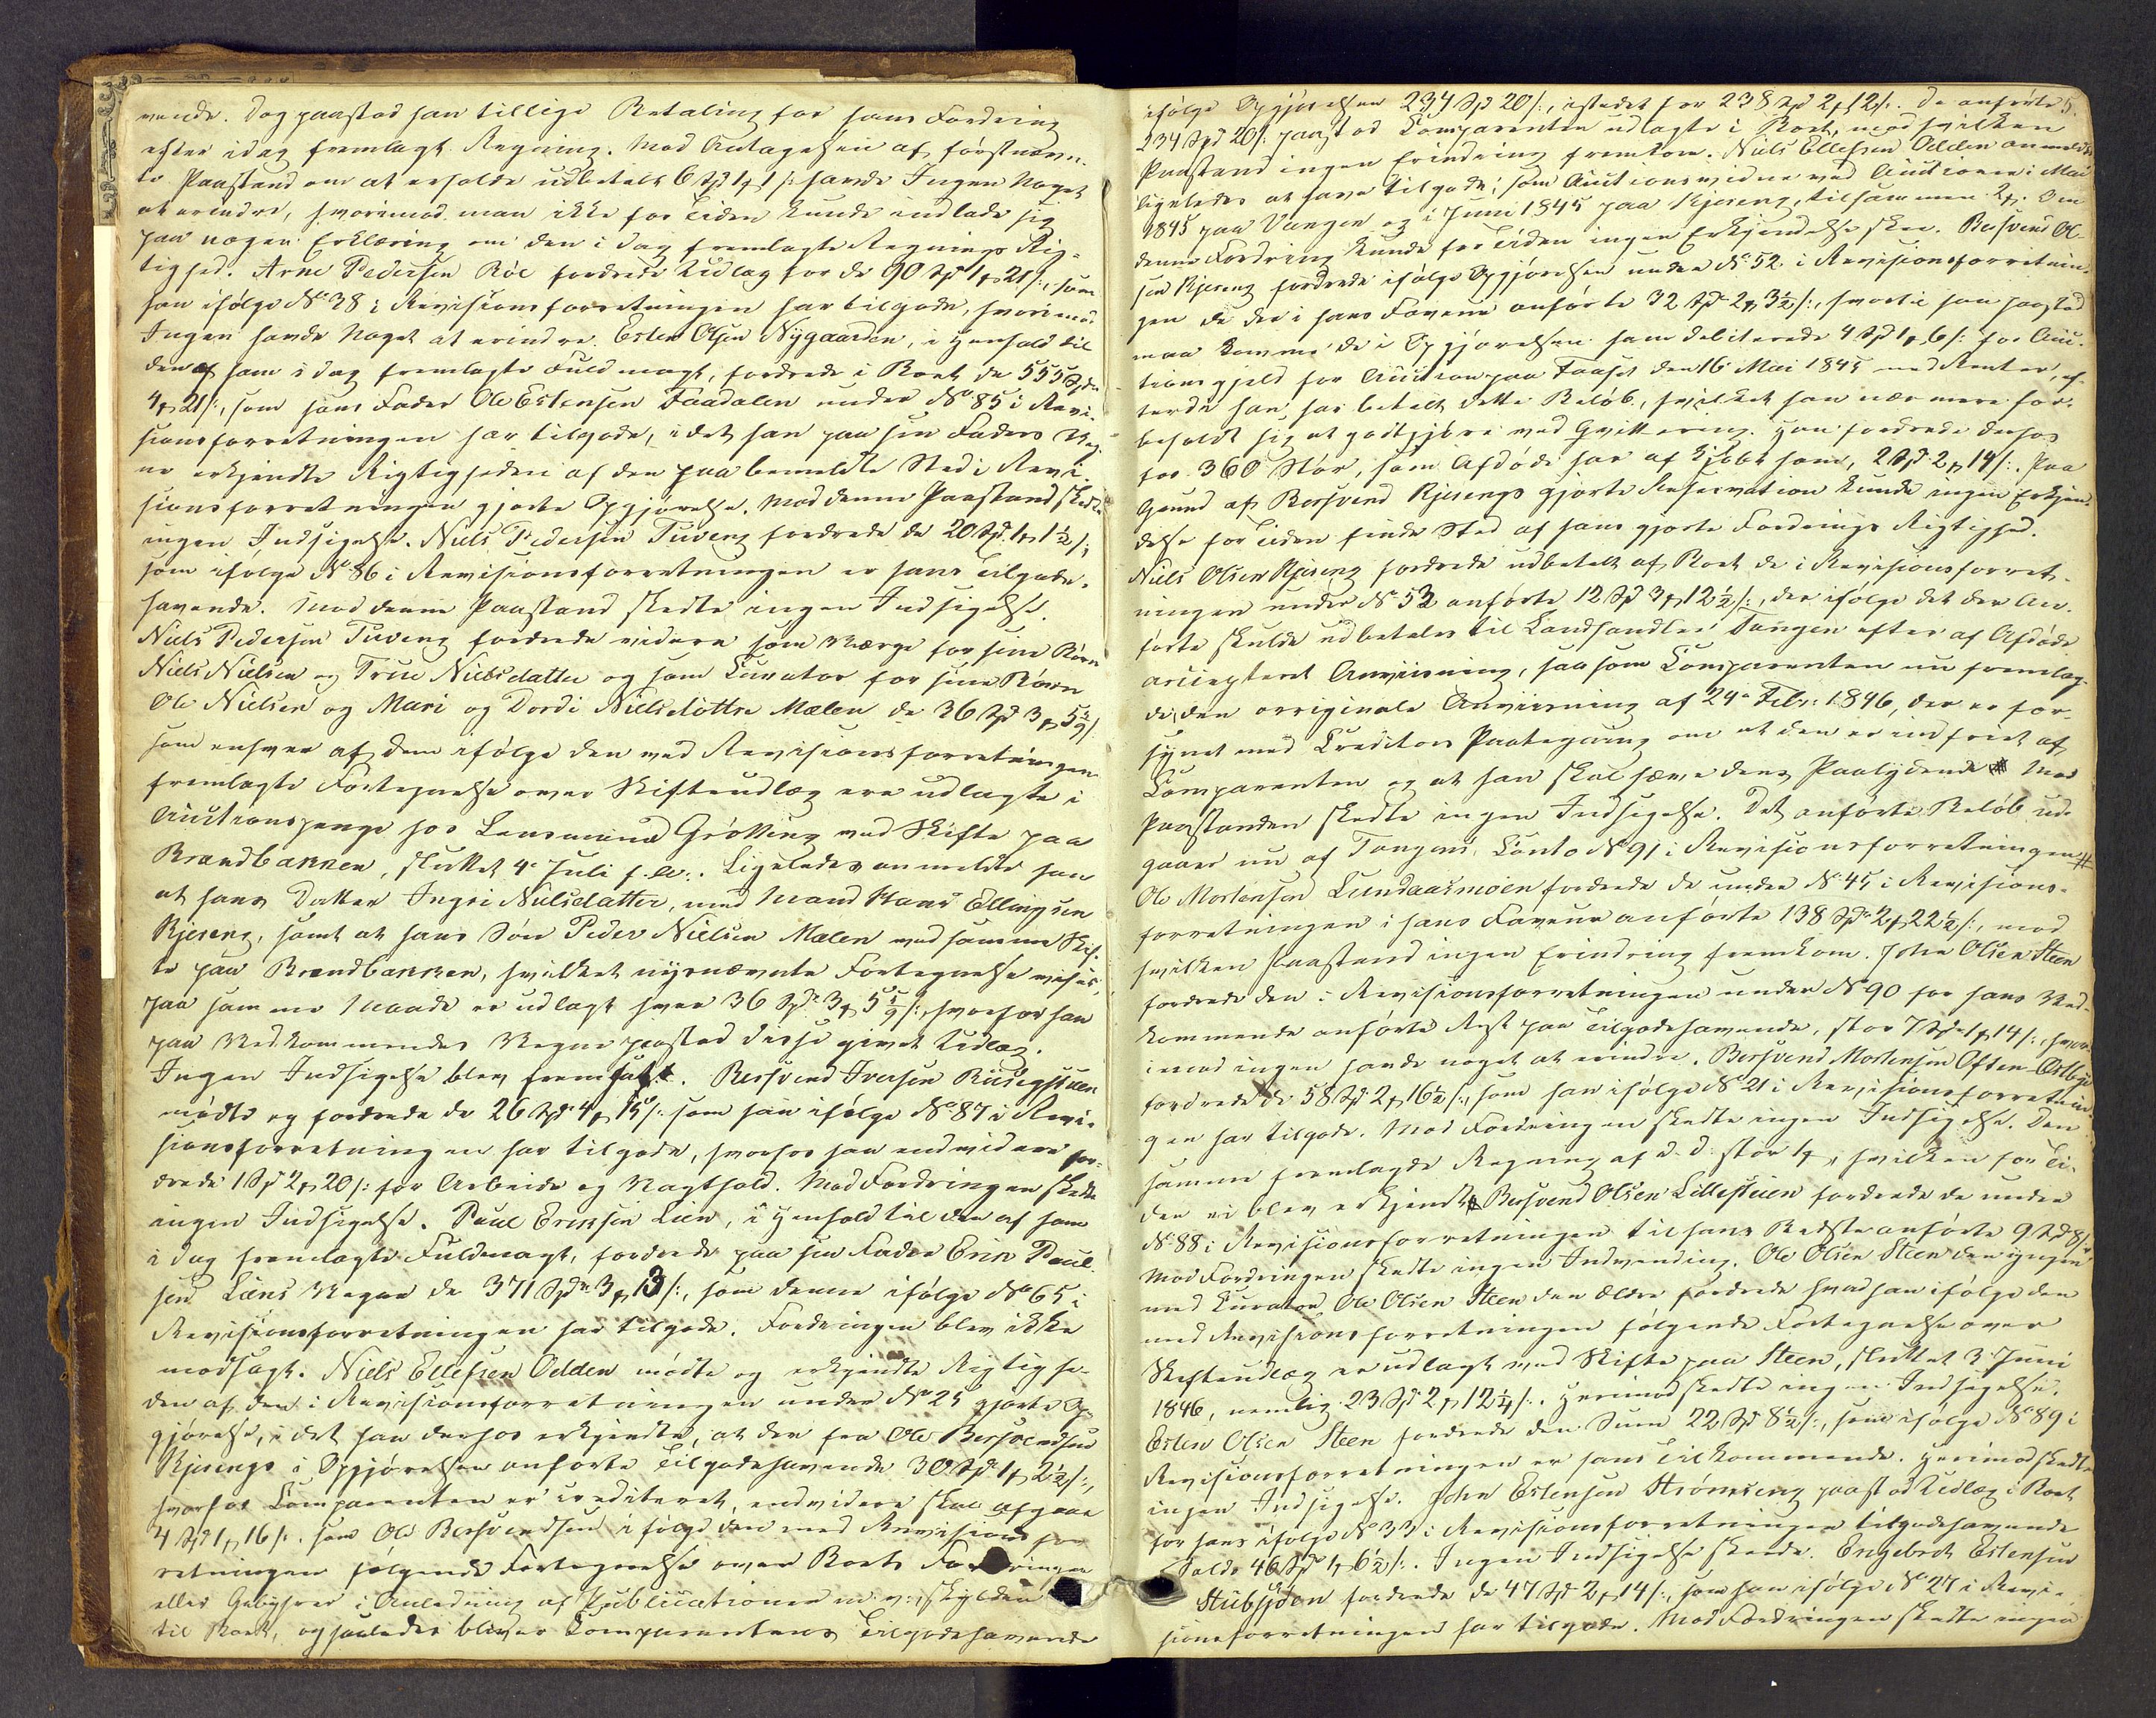 vende. Dog paastod han tillige Betaling for hans Fordring
efter idag fremlagt Regning. Mod Antagelsen af førstnævn-
te Paastand om at erholde udbetalt 6 Spd 1 ƒ 1 /: havde Ingen Noget
at erindre, hvorimod man ikke for Tiden kunde indlade sig
paa nogen Erklæring om den i Dag fremlagte Regnings Rig-
tighed. Arne Pedersen Röe fordrede Udlag for de 90 Spd 1 ƒ 21 /:, som
han ifølge No 38 i Revisionsforretningen har tilgode, hvorimod
Ingen havde Noget at erindre. Esten Olsen Nygaarden, i Henhold til
den af ham i Dag fremlagte Fuldmagt, fordrede i Boet de 555 Spdr
4 ƒ 21 /:, som hans Fader Ole Estensen Faadalen under No 85 i Revi-
sionsforretningen har tilgode, idet han paa sin Faders Veg-
ne erkjendte Rigtigheden af den paa bemeldte Sted i Revi-
sionsforretningen gjorte Opgjørelse. Mod denne Paastand skedte
ingen Indsigelse. Niels Pedersen Tuveng fordrede de 20 Spd. 1 ƒ 1½ /:
som ifølge No 86 i Revisionsforretningen er hans Tilgode-
havende. Mod denne Paastand skedte ingen Indsigelse.
Niels Pedersen Tuveng fordrede videre som Værge for sine Børn
Niels Nielsen og Trine Nielsdatter og som Curator for sine Børn
Ole Nielsen og Mari og Dordi Nielsdöttre Mælen de 36 Spd 3 ƒ 5 5/9 /:
som enhver af dem ifølge den ved Revisionsforretningen
fremlagte Fortegnelse over Skifteudlæg ere udlagte i
Auctionspenge hos Lensmand Grötting ved Skifte paa
Brandbakken, sluttet 4de Juli f. A:. Ligeledes anmeldte han
at hans Datter Ingri Nielsdatter, med Mand Hans Ellingsen
Kjereng, samt at hans Søn Peder Nielsen Mælen ved samme Skif-
te paa Brandbakken, hvilket nysnævnte Fortegnelse viser,
paa samme Maade er udlagt hver 36 Spd 3 ƒ 5 5/9 /:, hvorfor han
paa Vedkommendes Vegne paastod disse givet Udlæg.
Ingen Indsigelse blev fremsat. Bersvend Iversen Rusegstuen
mødte og fordrede de 26 Spd 4 ƒ 15 /: som han ifølge No 87 i Revi-
sionsforretningen har tilgode, hvorhos han endvidere for-
drede 1 Spd 2 ƒ 20 /: for Arbeide og Vagthold. Mod Fordringen skedte
ingen Indsigelse. Paul Eriksen Lien, i Henhold til den af ham
i Dag fremlagte Fuldmagt, fordrede paa sin Fader Erik Paul-
sen Liens Vegne de 371 Spdr 3 ƒ 13 /:, som denne ifølge No 65 i
Revisionsforretningen har tilgode. Fordringen blev ikke
modsagt. Niels Ellefsen Odden mødte og erkjendte Rigtighe-
den af den i Revisionsforretningen under No 25 gjorte Op-
gjørelse, idet han derhos erkjendte, at den fra Ole Bersvendsen
Kjerengs i Opgjørelsen anførte Tilgodehavende 30 Spd 1 ƒ 2½ /:,
hvorfor Comparenten er crediteret, endvidere skal afgaae
4 Spd 1 ƒ 16 /: som Ole Bersvendsen ifølge den med Revisionsfor-
retningen følgende Fortegnelse over Boets Fordringer
eller Gebyhrer i Anledning af Publicationen m: v: skylder
til Boet, og saaledes bliver Comparentens Tilgodehavende
5.
ifølge Opgjørelsen 234 Spd 20 /:, istedet for 238 Spd 2 ƒ 12 /:. De anførte
234 Spd 20 /: paastod Comparenten udlagte i Boet, mod hvilken
Paastand ingen Erindring fremkom. Niels Ellefsen Odden anmeldte
ligeledes at have tilgode, som Auctionsvidne ved Auctioner i Mai
1845 paa Vangen og i Juni 1845 paa Kjereng, tilsammen 2 ƒ. Om
denne Fordring kunde for Tiden ingen Erkjendelse skee. Bersvend Ol-
sen Kjereng fordrede ifølge Opgjørelsen under No 52 i Revisionsforretnin-
gen de der i hans Faveur anførte 32 Spd 2 ƒ 3½ /:, hvortil han paastod
maa komme de i Opgjørelsen ham debiterede 4 Spd 1 ƒ 6 /: for Auc-
tionsgjeld for Auction paa Faaset den 16 Mai 1845 med Renter, ef-
terdi han har betalt dette Beløb, hvilket han nærmere for-
beholdt sig at godtgjøre ved Qvittering. Han fordrede derhos
for 360 Stör, som Afdøde har af kjøbt ham, 2 Spd 2 ƒ 14 /:. Paa
Grund af Bersvend Kjerengs gjorte Reservation kunde ingen Erkjen-
delse for Tiden finde Sted af hans gjorte Fordrings Rigtighed.
Niels Olsen Kjereng fordrede udbetalt af Boet de i Revisionsforret-
ningen under No 53 anførte 12 Spd 3 ƒ 12½ /:, der ifølge det der An-
førte skulde udbetales til Landhandler Tangen efter af Afdøde
accepteret Anviisning, saasom Comparenten nu fremlag-
de den originale Anviisning af 24de Febr: 1846, der er for-
synet med Creditors Paategning om at den er indfriet af
Comparenten og at han skal hæve dens Paalydende # Mod
Paastanden skedte ingen Indsigelse. Det anførte Beløb ud-
gaaer nu af Tangens Conto No 91 i Revisionsforretningen #
Ole Mortensen Lundaasmoen fordrede de under No 45 i Revisions-
forretningen i hans Faveur anførte 138 Spdr 2 ƒ 22½ /:, mod
hvilken Paastand ingen Erindring fremkom. John Olsen Steen
fordrede den i Revisionsforretningen under No 90 for hans Ved-
kommende anførte Rest paa Tilgodehavende, stor 7 Spd 1 ƒ 14 /:, hvor-
imod ingen havde noget at erindre. Bersvend Mortensen Often-Østbye
fordrede de 58 Spd 2 ƒ 16½ /:, som han ifølge No 21 i Revisionsforretnin-
gen har tilgode. Mod Fordringen skedte ingen Indsigelse. Den
samme fremlagde Regning af d. D: stor 1 ƒ, hvilken for Ti-
den ei blev erkjendt # Bersvend Olsen Lillestuen fordrede de under
No 88 i Revisionsforretningen til hans Bedste anførte 9 Spd 8 /:
Mod Fordringen skedte ingen Indvending. Ole Olsen Steen den yngre
med Curator Ole Olsen Steen den Ældre fordrede hvad han ifølge den
med Revisionsforretningen følgende Fortegnelse over
Skifteudlæg er udlagt ved Skifte paa Steen, sluttet 3 Juni
1846, nemlig 23 Spd 2 ƒ 12¼ /:. Herimod skedte ingen Indsigelse.
Esten Olsen Steen fordrede den Sum 22 Spd 8½ /:, som ifølge No 89 i
Revisionsforretningen er hans Tilkommende. Herimod skedte
ingen Indsigelse. John Estensen Strömseng paastod Udlæg i Boet
for hans ifølge No 33 i Revisionsforretningen tilgodehavende
Saldo 46 Spd 4 ƒ 6½ /:. Ingen Indsigelse skeede. Engebret Estensen
Stubsjöen fordrede de 47 Spd 2 ƒ 14 /:, som han ifølge No 27 i Revi-
sionsforretningen har tilgode. Mod Fordringen skedte ingen